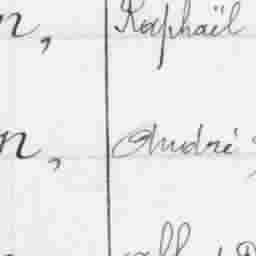 n, Raphaël
n, André